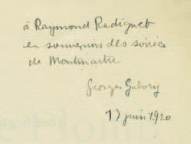 à Raymond Radiguet
en souvenirs des soirées
de Montmartre
Georges Gabory
17 juin 1920